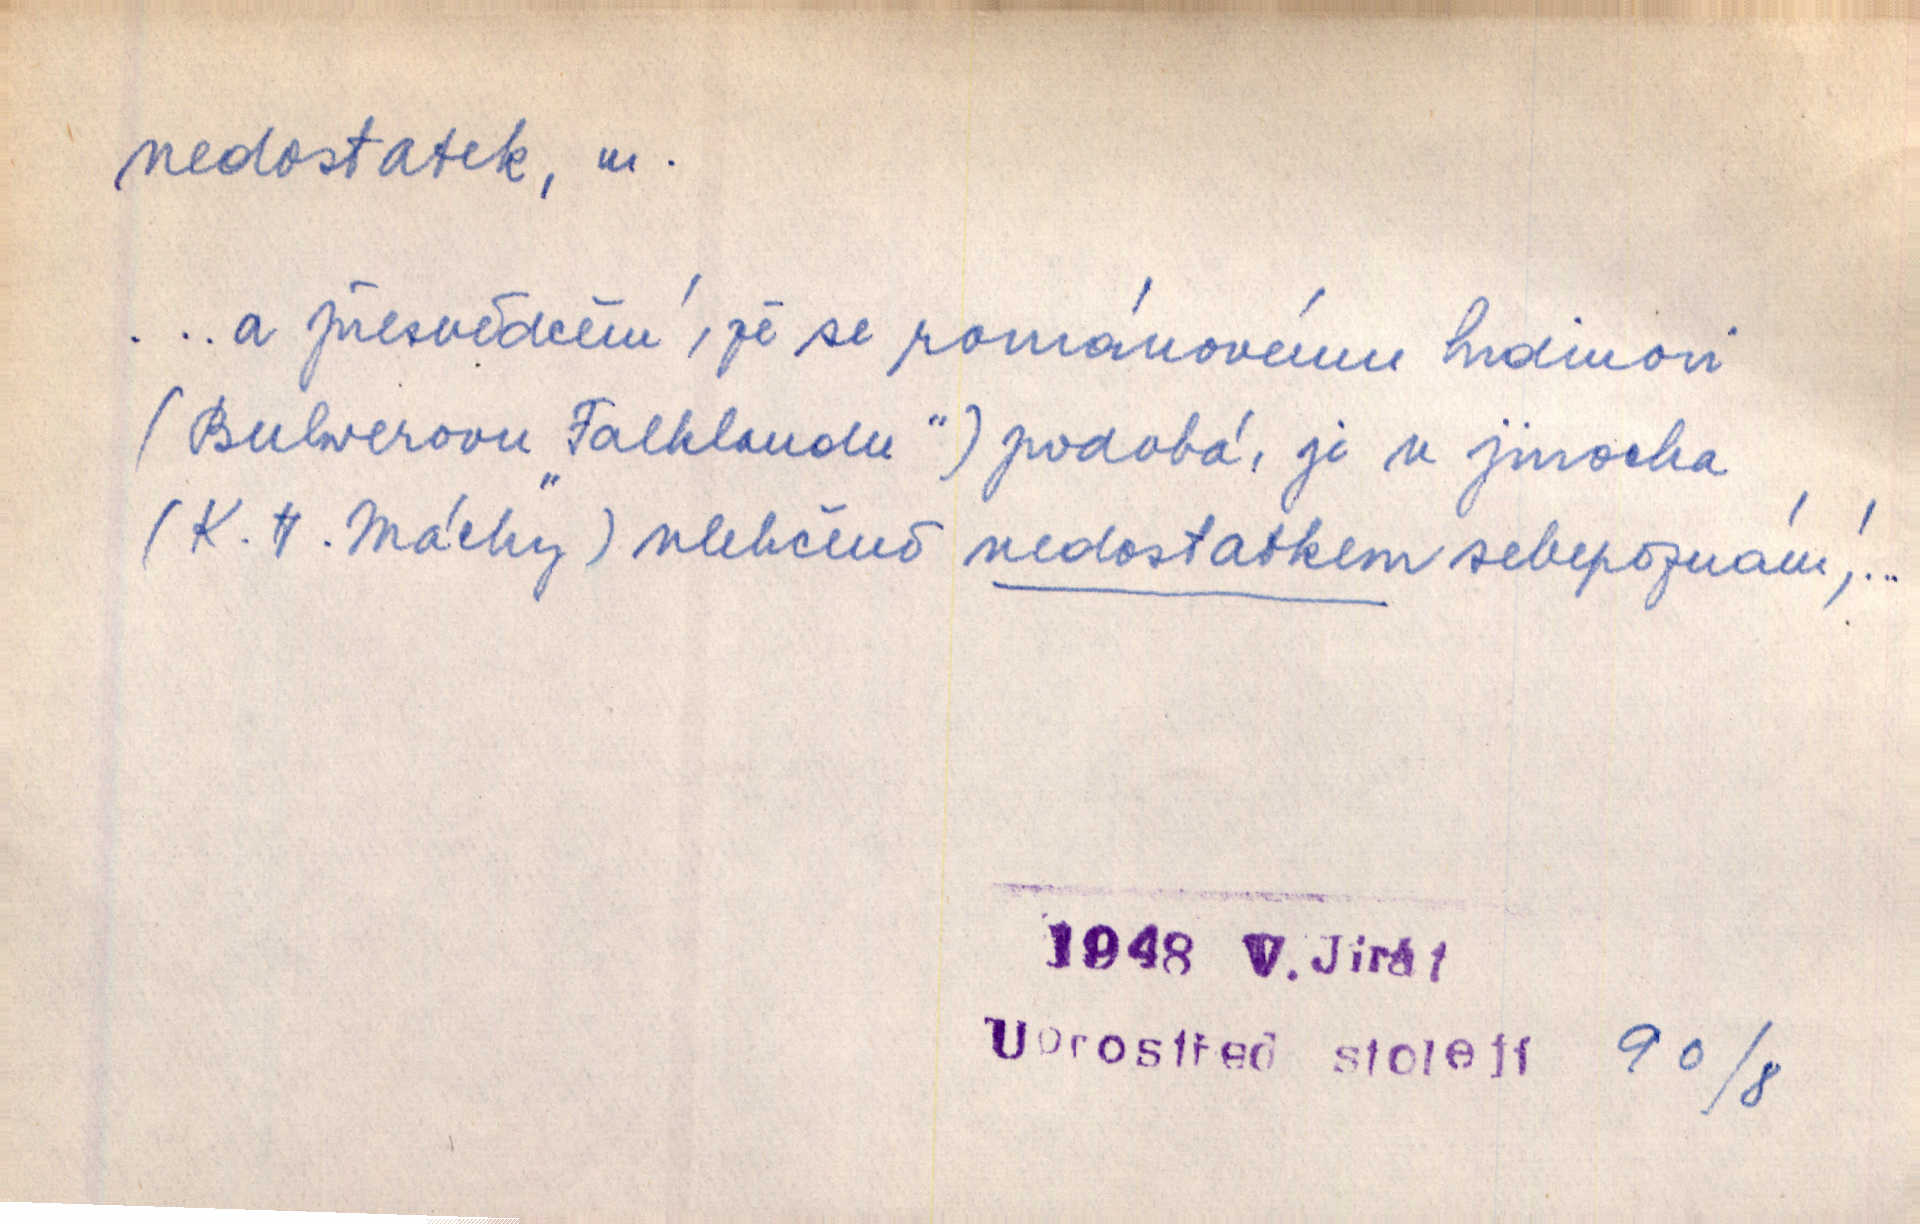 nedostatek, m.
...a přesvědčení, že se románovému hrdinovi
(Bulwerovu „Falklandu“) podobá, je u jinocha
(K. H. Máchy) ulehčeno nedostatkem sebepoznání,...
1948 V. Jirát
Uprostřed století 90/8